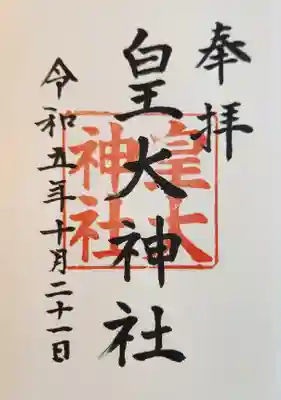 奉拝
皇大神社
皇大
神社
令和五年十月二十一日